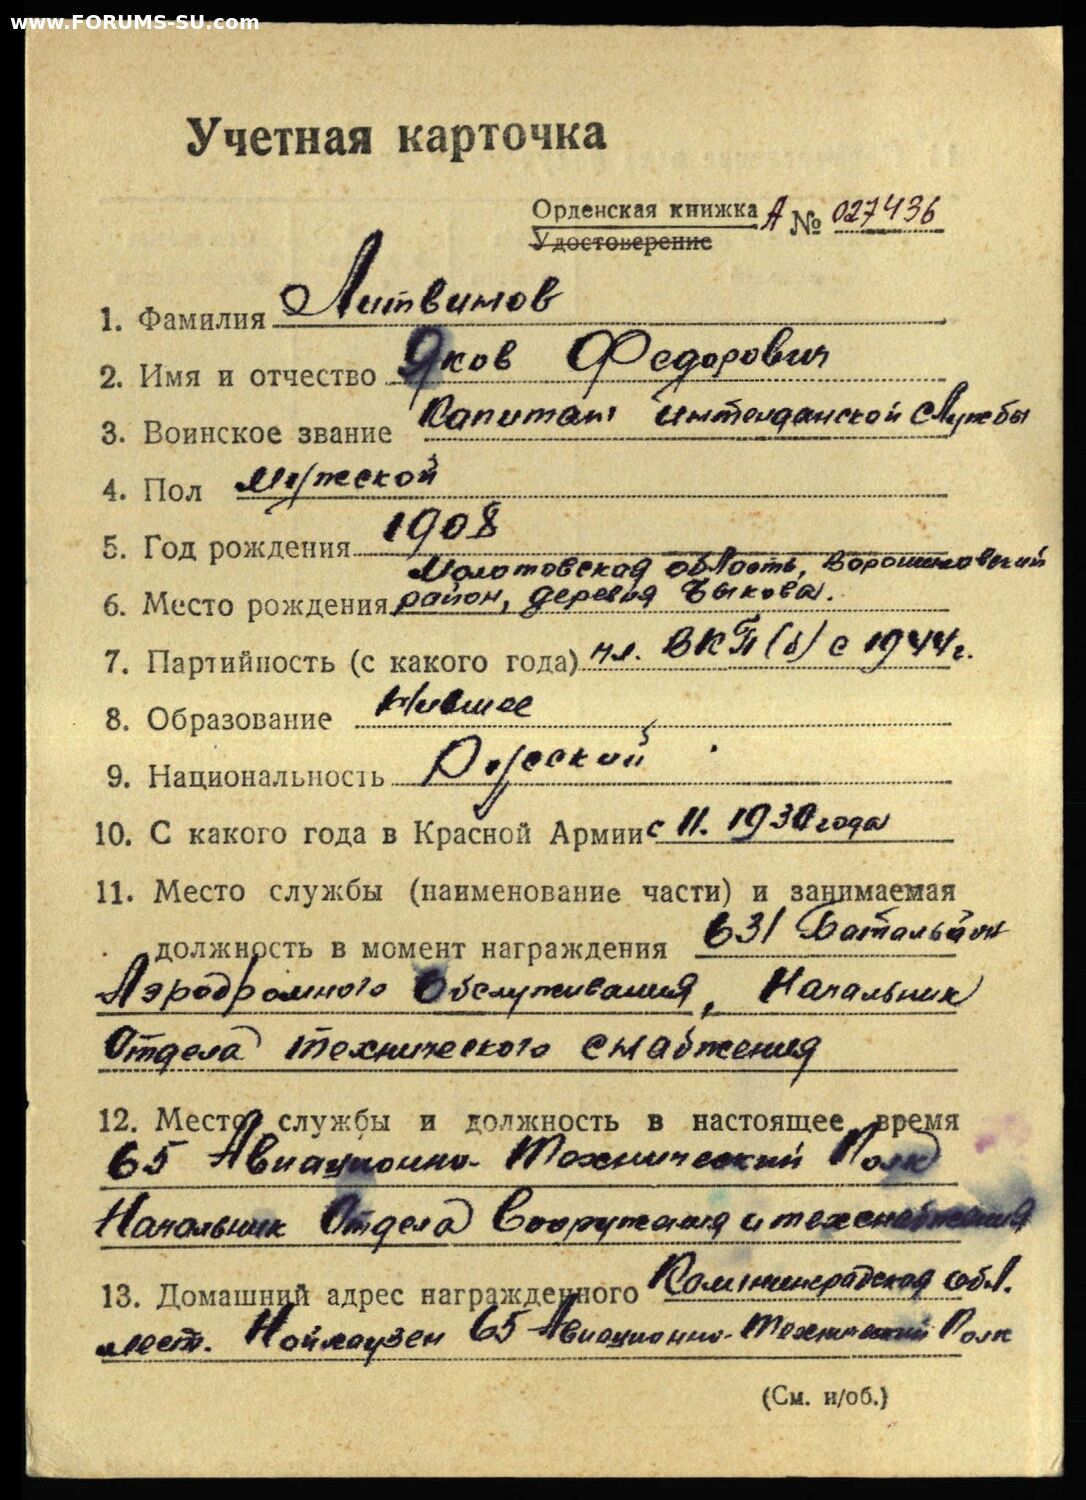 www.FORUMS-SU.com
Учетная карточка
Орденская книжка А № 027436
Удостоверение
1. Фамилия Литвинов
2. Имя и отчество Яков Федорович
3. Воинское звание Капитан интенданской службы
4. Пол Мужской
5. Год рождения 1908
Молотовская область, Ворошиловский
6. Место рождения район, деревня Быкова.
7. Партийность (с какого года) чл. ВКП(б) с 1944 г.
8. Образование Низшее
9. Национальность Русский
10. С какого года в Красной Армии с 11. 1930 года
11. Место службы (наименование части) и занимаемая
должность в момент награждения 631 Батальон
Аэродромного Обслуживания, Начальник
Отдела технического снабжения
12. Место службы и должность в настоящее время
65 Авиационно-Технический Полк
Начальник Отдела Вооружения и техснабжения
13. Домашний адрес награжденного Калининградская обл.
мест. Нойхаузен 65 Авиационно-Технический Полк
(См. н/об.)